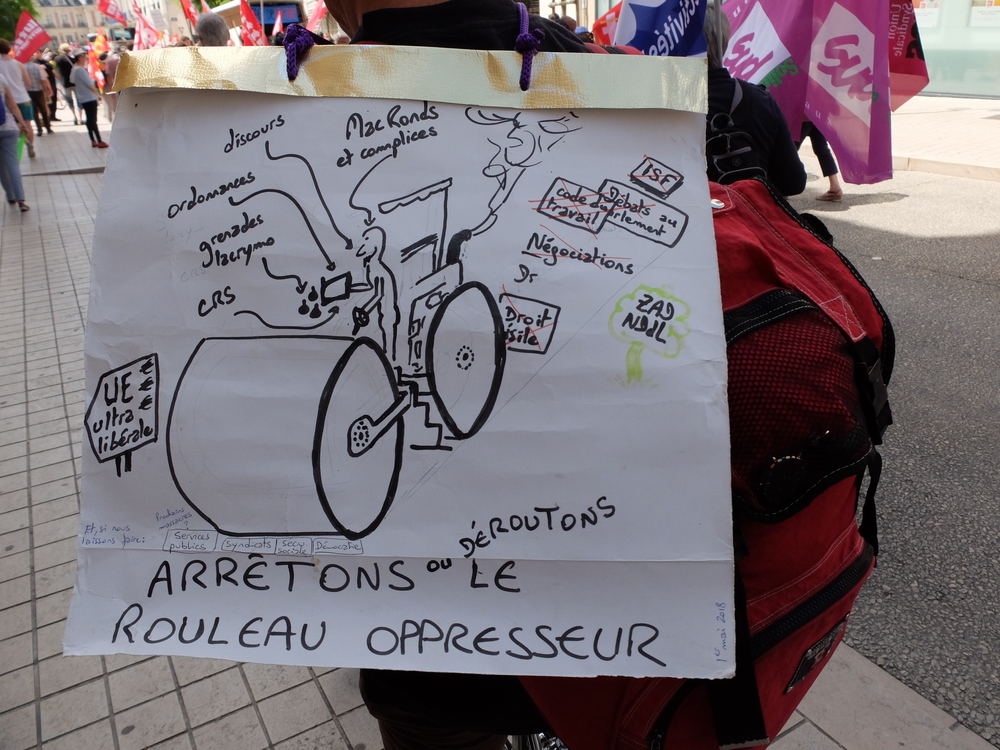 discours
MacRonds
et complices
ordonnances
grenades
lacrymo
CRS
ISF
Code du
travail
Débats au
parlement
Négociations
Dr
Droit
asile
ZAD
NDdL
UE
ultra
libérale
€€€€
Et, si nous
laissons faire:
Prochains
massacres
?
Services
publics
Syndicats
Sécu
sociale
Démocratie
ARRÊTONS OU DÉROUTONS LE
ROULEAU OPPRESSEUR
1er mai 2018
Union
Syndicale